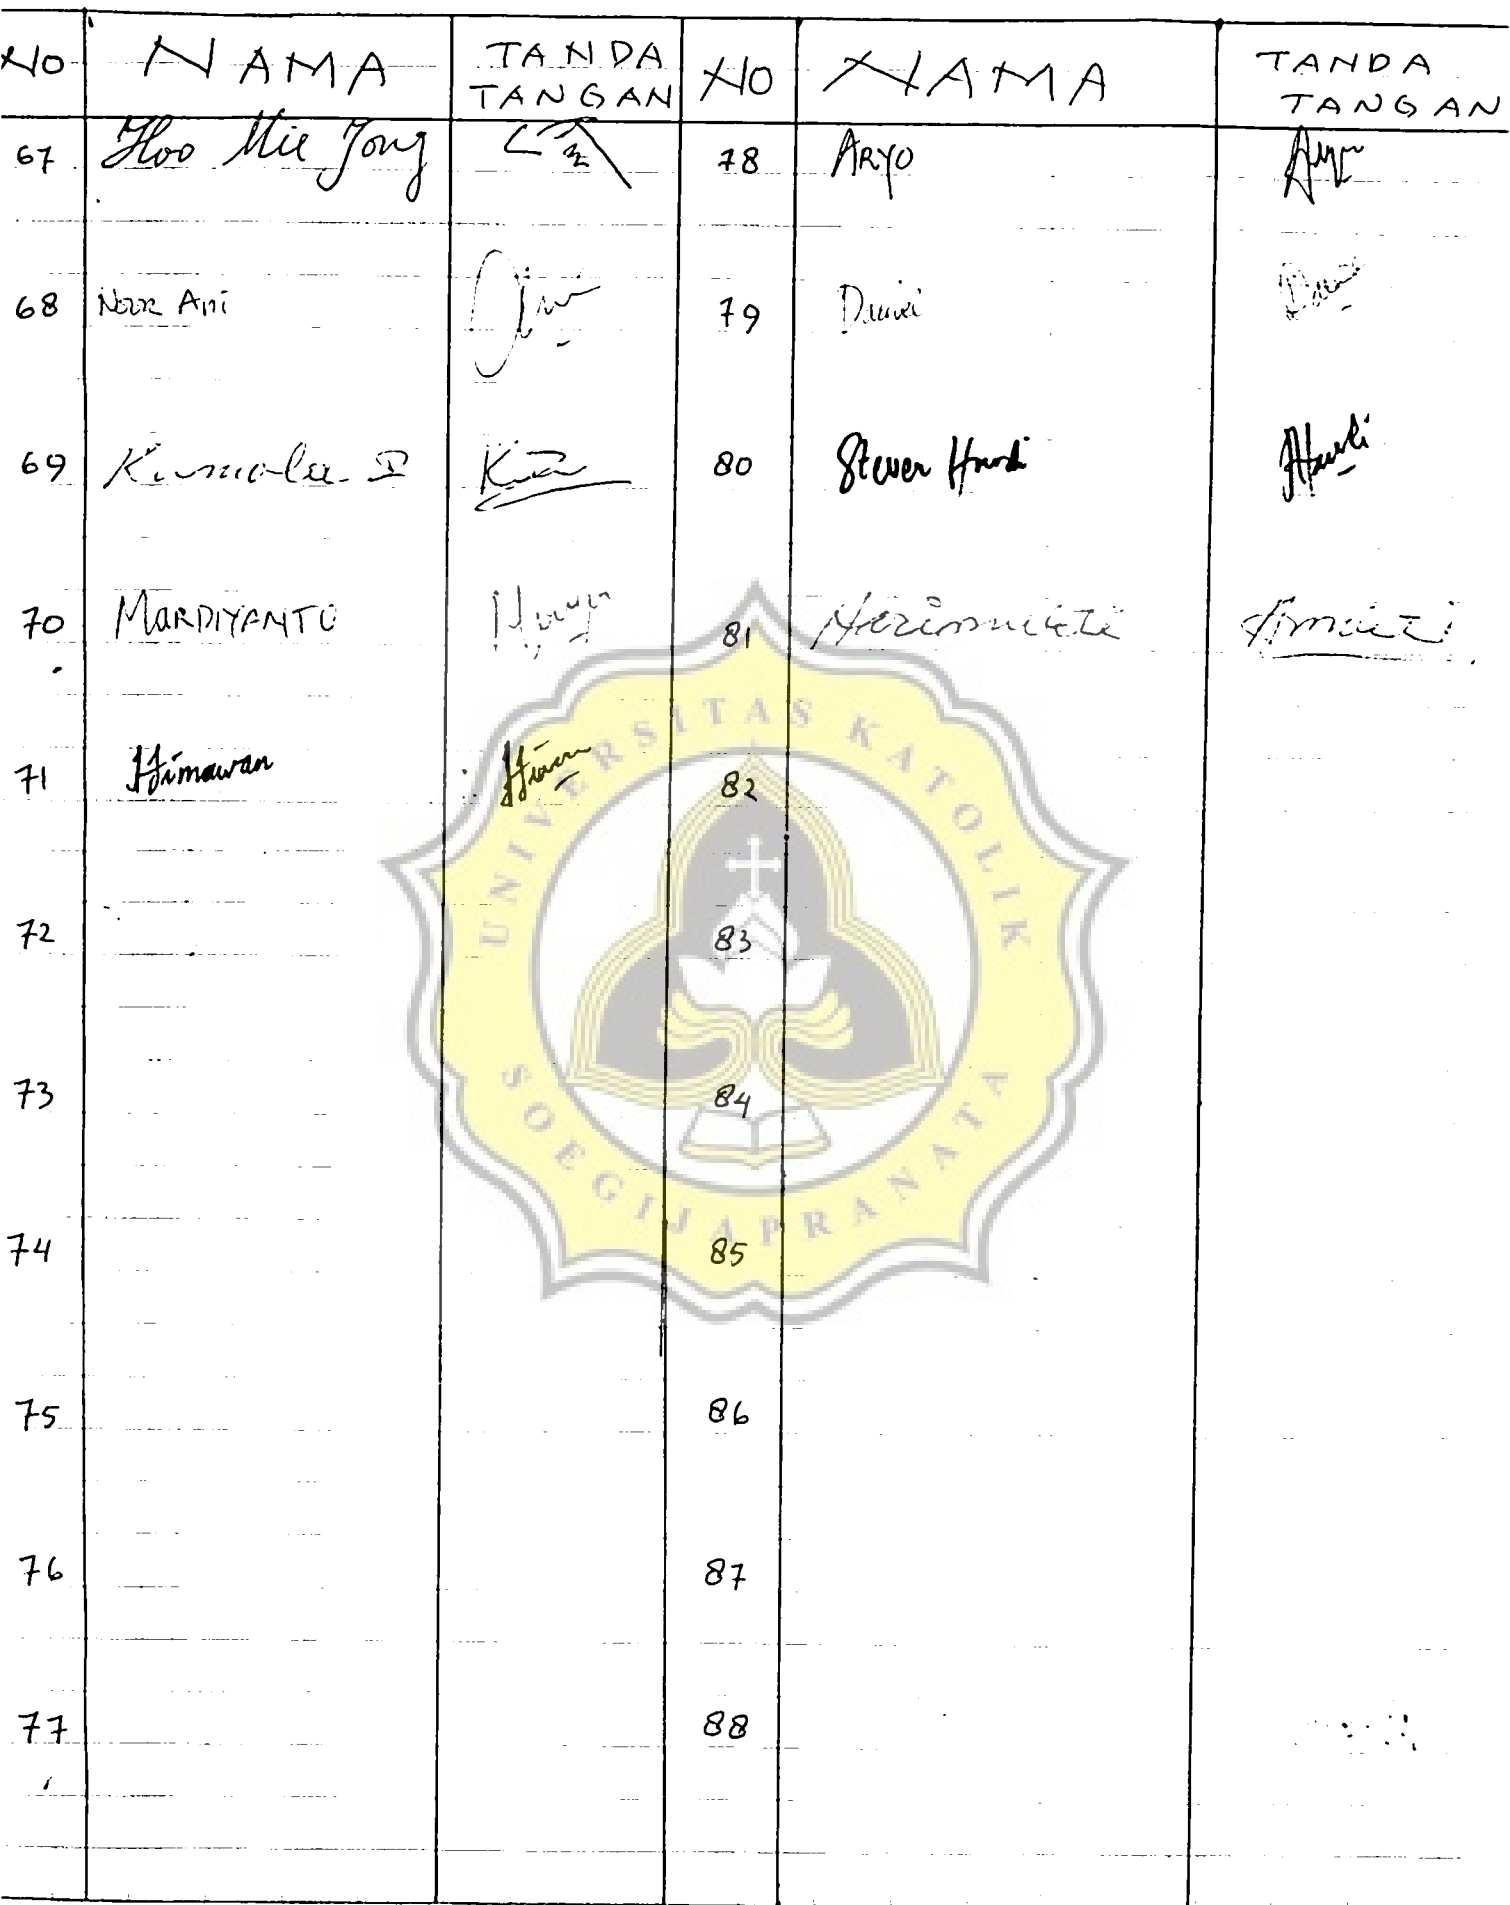 NO NAMA TANDA TANGAN NO NAMA TANDA TANGAN
67 Hoo Mie Jong 78 ARYO
68 Noor Ani 79 Daniel
69 Kumala 80 Steven
70 MARDIYANTO 81
71 Himawan 82
72 83
73 84
74 85
75 86
76 87
77 88
UNIVERSITAS KATOLIK
SOEGIJAPRANATA